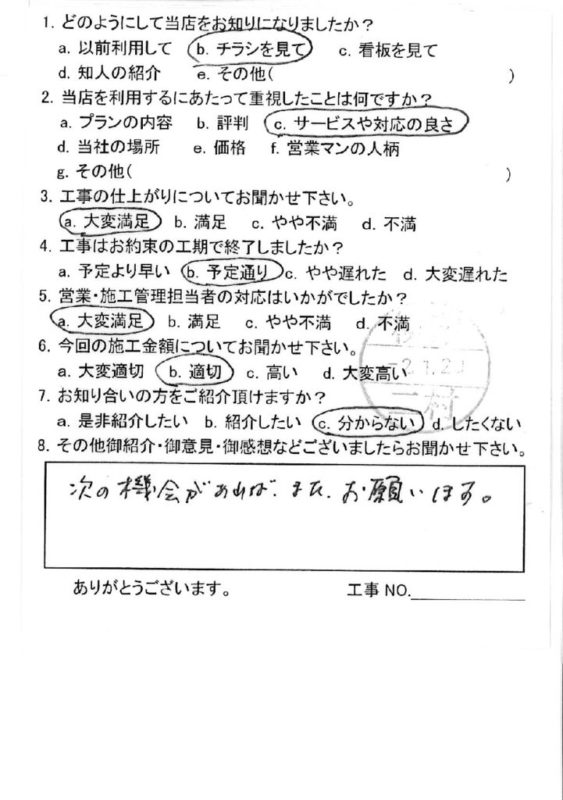 1. どのようにして当店をお知りになりましたか？
a. 以前利用して b. チラシを見て c. 看板を見て
d. 知人の紹介 e. その他( )
2. 当店を利用するにあたって重視したことは何ですか？
a. プランの内容 b. 評判 c. サービスや対応の良さ
d. 当社の場所 e. 価格 f. 営業マンの人柄
g. その他( )
3. 工事の仕上がりについてお聞かせ下さい。
a. 大変満足 b. 満足 c. やや不満 d. 不満
4. 工事はお約束の工期で終了しましたか？
a. 予定より早い b. 予定通り c. やや遅れた d. 大変遅れた
5. 営業・施工管理担当者の対応はいかがでしたか？
a. 大変満足 b. 満足 c. やや不満 d. 不満
6. 今回の施工金額についてお聞かせ下さい。
a. 大変適切 b. 適切 c. 高い d. 大変高い
7. お知り合いの方をご紹介頂けますか？
a. 是非紹介したい b. 紹介したい c. 分からない d. したくない
8. その他御紹介・御意見・御感想などございましたらお聞かせ下さい。
次の機会があれば、また、お願います。
ありがとうございます。 工事 NO.